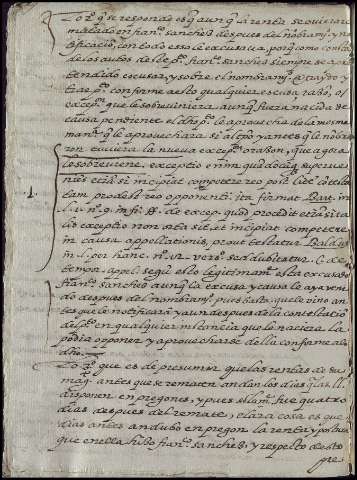 Lo 2º q̃ se responde es q̃ aunq̃ la renta se ouiera re
matado en fran.co sanches despues del nobram.to y no
tificaçiõ, con todo esso le excusaua, porq̃ como consta
de los autos deste p.to fran.co sanches siempre a pre
tendido escusar, y sobre el nombram.to
conforme a esto qualquier escusa rabõ, o
excepçiõ que le sobreuiniera, aunq̃ fuera nacida de
causa pendiente el dho p.to le aprouecha de la mesma
manera q̃ le aprouechara si al tpo y antes q̃ le nõbra
ron tuuiera la nueua excepçiõ o rason, que agora
le sobreuiene, exceptio enim quãdocũq̃ superue
niẽs etiã si incipiat competere post litẽ cõtesta
tam prodest reo opponenti ita firmat Bart. in
l. 1. nº 9. in fi. ff. de excep. quod procedit etiã si ta
lis exceptio non orta sit, et incipiat competere
in causa appellationis, prout testatur Baldus
in l. per hanc. nº 12. vers. sed dubitatur C. de
tempor. appel. segũ esto legitimam.te esta excusado
fran.co sanches aunq̃ la excusa y causa le aya veni
do despues del nombram.to pues hasta que le vino an
tes que le notificara y aun despues de la contestaciõ
del p.to en qualquier instancia que le naciera la
podia opponer y aprouecharse della conforme a lo
dho.
Lo 3º que es de presumir que las rentas de su
mag.d antes que se rematen andan los dias q̃ las ll.
disponen en pregones, y pues el llam.to fue quatro
dias despues del remate, clara cosa es que
dias antes andubo en pregon la renta y postura
que en ella hizo fran.co sanches, y respeto de esto
pre
1.